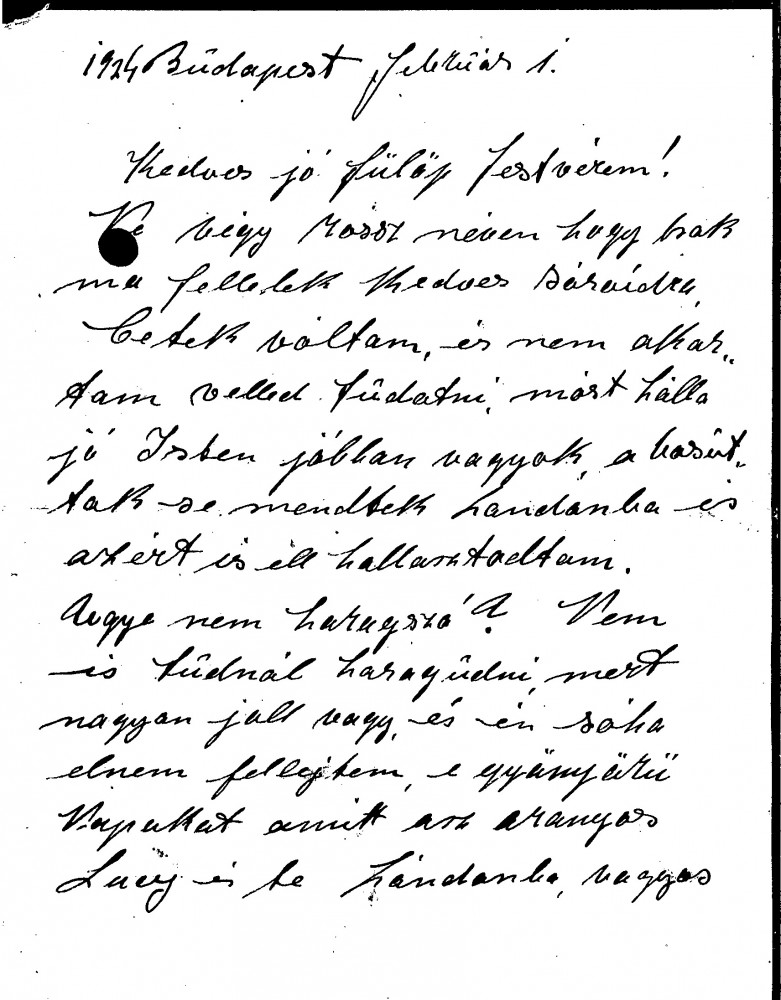 1924 Büdapest februás 1.
Kedves jó fülöp Testvérem!
Ne végy rossz néven hogy csak
ma fellelek Kedves Sóraidra,
Betek vóltam, és nem akar„
tam velled tüdatni, móst hálla
jó Isten jóbban vagyok, a vasút„
tak se mendtek Londonba és
azért is ell hallasztodtam.
Úugye nem haragszó? Nem
is tüdnál haragüdni, mert
nagyon joll vagy, és én sóha
elnem fellejtem, e gyönyörü
Napokat amitt asz aranyos
Lucy és te Lóndonba, vagyos